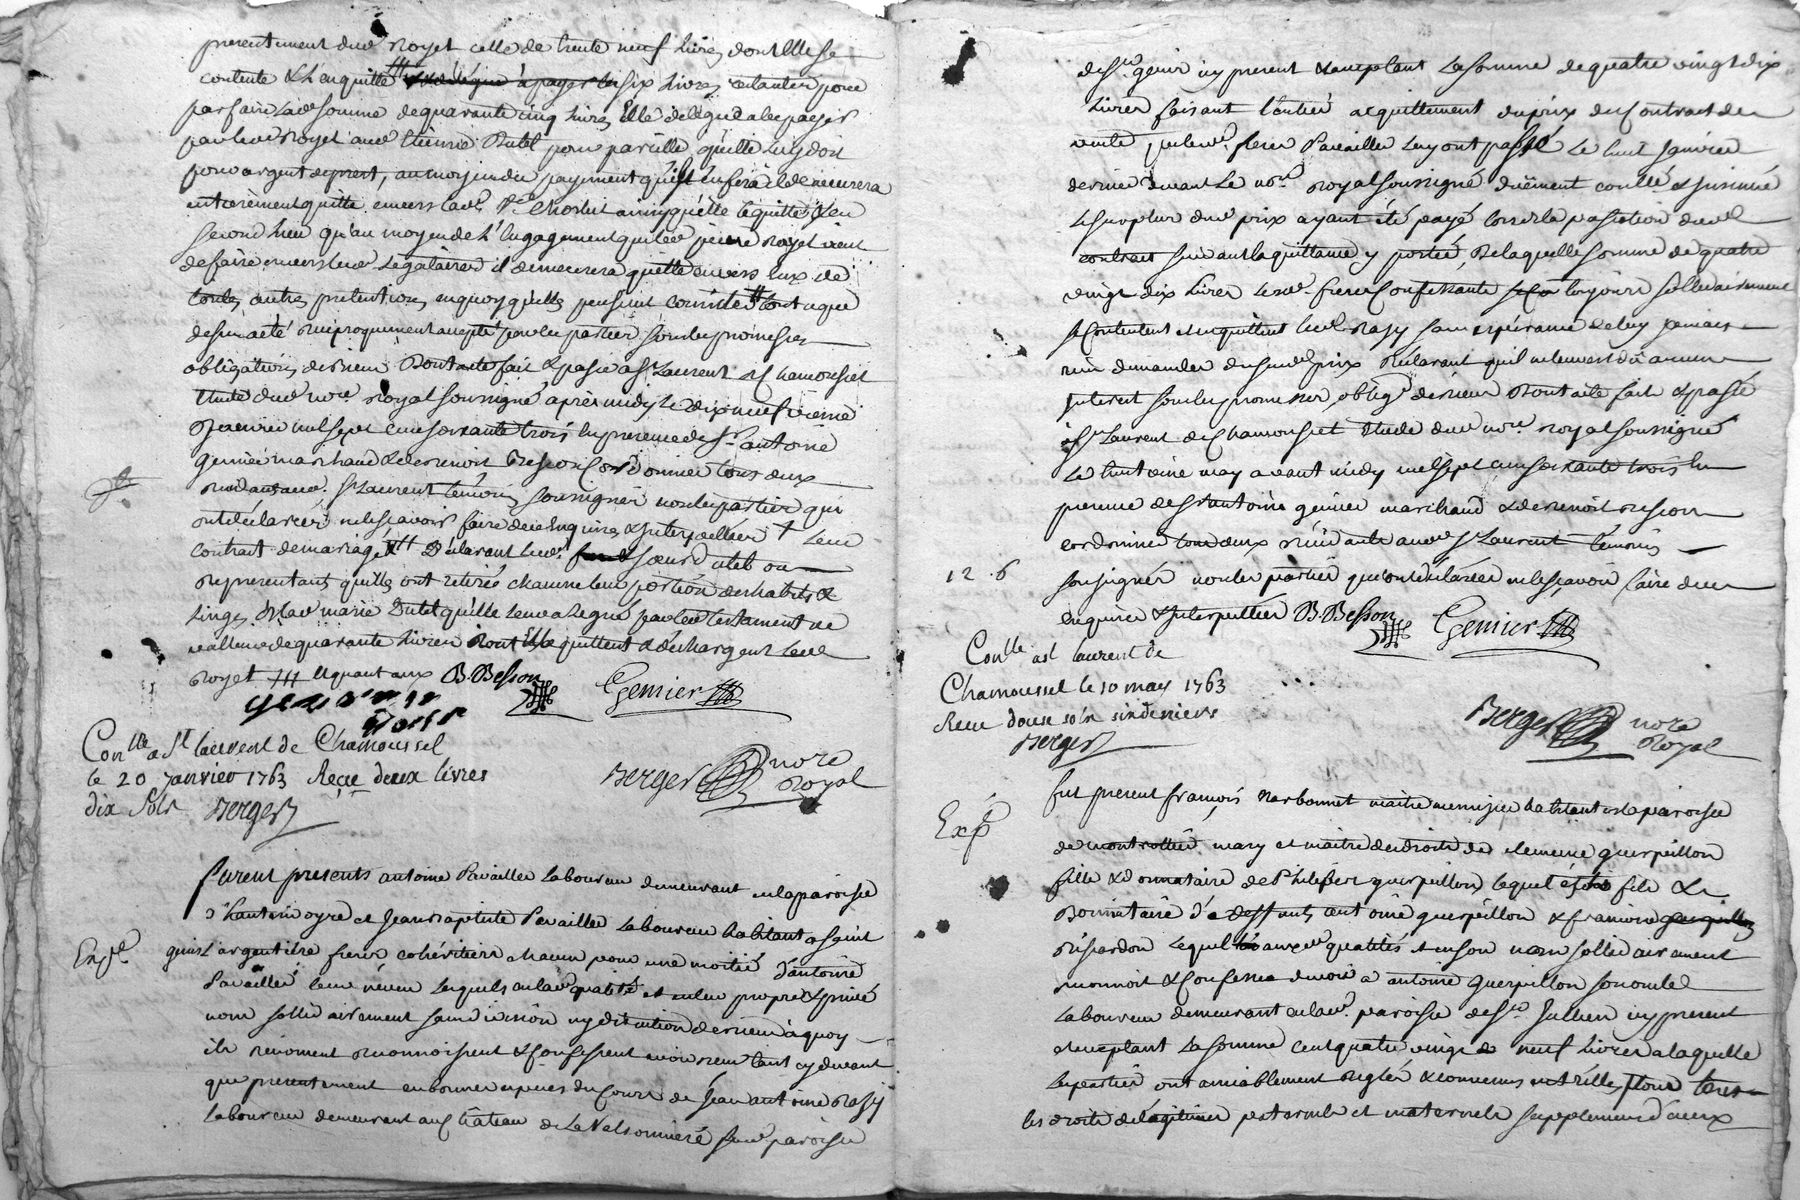 presentement dud Royet celle de trente neuf livres dont elle se
contente & l'en quitte six livres restantes pour
parfaire lad somme de quarante cinq livres elle delegue a les payer
par led Royet aud Etienne Dutel pour pareille qu'elle luy doit
pour argent depret, au moyen du payement qu'il en fera il demeurera
entierement quitte envers lad ainsy qu'elle le quitte, & en
second lieu qu'au moyen de l'engagement que led pierre Royet vient
de faire envers lesd legataires il demeurera quitte envers eux de
toutes autres pretentions en quoy qu'elles pussent consister tout ce que
dessus a eté reciproquement accepté par les parties sous les promesses
obligations de rien Dont acte fait & passé a St Laurent de Chamousset
Etude dud nore Royal soussigné après midy le dix neuf vieme
janvier mil sept cent soixante trois en presence de Sr antoine
Genier marchand & de Benoit Besson Cordonnier tous deux
residants aud St Laurent temoins soussignés non les parties qui
ont déclaré ne sçavoir faire de ce enquises & interpellées † leur
contrat de mariage Déclarant lesd soeurs dutel ou
Representants qu'elles ont retirée chacune leur portion des habits &
linges, & lad marie Dutel qu'elle leur a legué par led testament de
valleur de quarante livres dont elles quittent & dechargent led
Royet B. Besson Genier
Conlle a St laurent de Chamoussel
le 20 janvier 1763 Reçu deux livres
dix sols Berger
Berger nore
Royal
furent presents antoine Pavailler laboureur demeurant en la paroisse
d'hauterivoyre et Jean Baptiste Pavailler laboureur habitant a saint
Exple
genis l'argentiere freres cohéritiers chacun pour une moitié d'antoine
Pavailler leur néveu lesquels en lad qualité et en leur propre & privé
nom sollidairement sans division ny discution de rien à quoy
ils renoncent reconnoissent & confessent avoir receu tant cy devant
que presentement en bonnes especes du cours de Jean antoine Razy
laboureur demeurant au Château de la Valsonniere paroisse
de St genis icy present & acceptant la somme de quatre vingt dix
livres faisant l'entier acquittement du prix du contrat de
vente que lesd freres Pavailler luy ont passé le huit janvier
dernier devant le nore royal soussigné duëment conllé & insinué
le surplus dud prix ayant été payé lors de la passation dud
contrat suivant la quittance y portée, De laquelle somme de quatre
vingt dix livres lesd freres confessants toujours sollidairement
se contentent & en quittent led Razy sans espérance de luy jamais
rien demander du susd prix Déclarant qu'il ne leur est dû aucun
interest sous les promesses, oblig de rien Dont acte fait & passé
a St Laurent de Chamousset Etude dud nore royal soussigné
le huitieme may avant midy mil sept cent soixante trois en
presence de Sr antoine genier marchand & de benoit besson
cordonnier tous deux résidants aud St Laurent temoins
12. 6
soussignés non les parties qui ont declaréés ne sçavoir faire de ce
enquises & interpellées B. Besson Genier
Conlle a St laurent de
Chamoussel le 10 may 1763
Recu douze sols six deniers
Berger
Berger nore
Royal
fut present françois Narbonnet maitre menuizier habitant en la paroisse
Exp
de montrottier mary et maitre des droits de clemence guerpillon
fille & donnataire de Philibert guerpillon lequel étoit fils &
Donnataire d'a deffunts antoine guerpillon & françoise
Rissardon lequel auxd qualités & en son nom sollidairement
reconnoit & confesse devoir a antoine guerpillon son oncle
laboureur demeurant en lad paroisse de St Jullien icy present
& acceptant la somme cent quatre vingt neuf livres a laquelle
les parties ont amiablement reglés & convenus entr'elles pour tous
les droits de légitime paternels et maternels supplement d'iceux